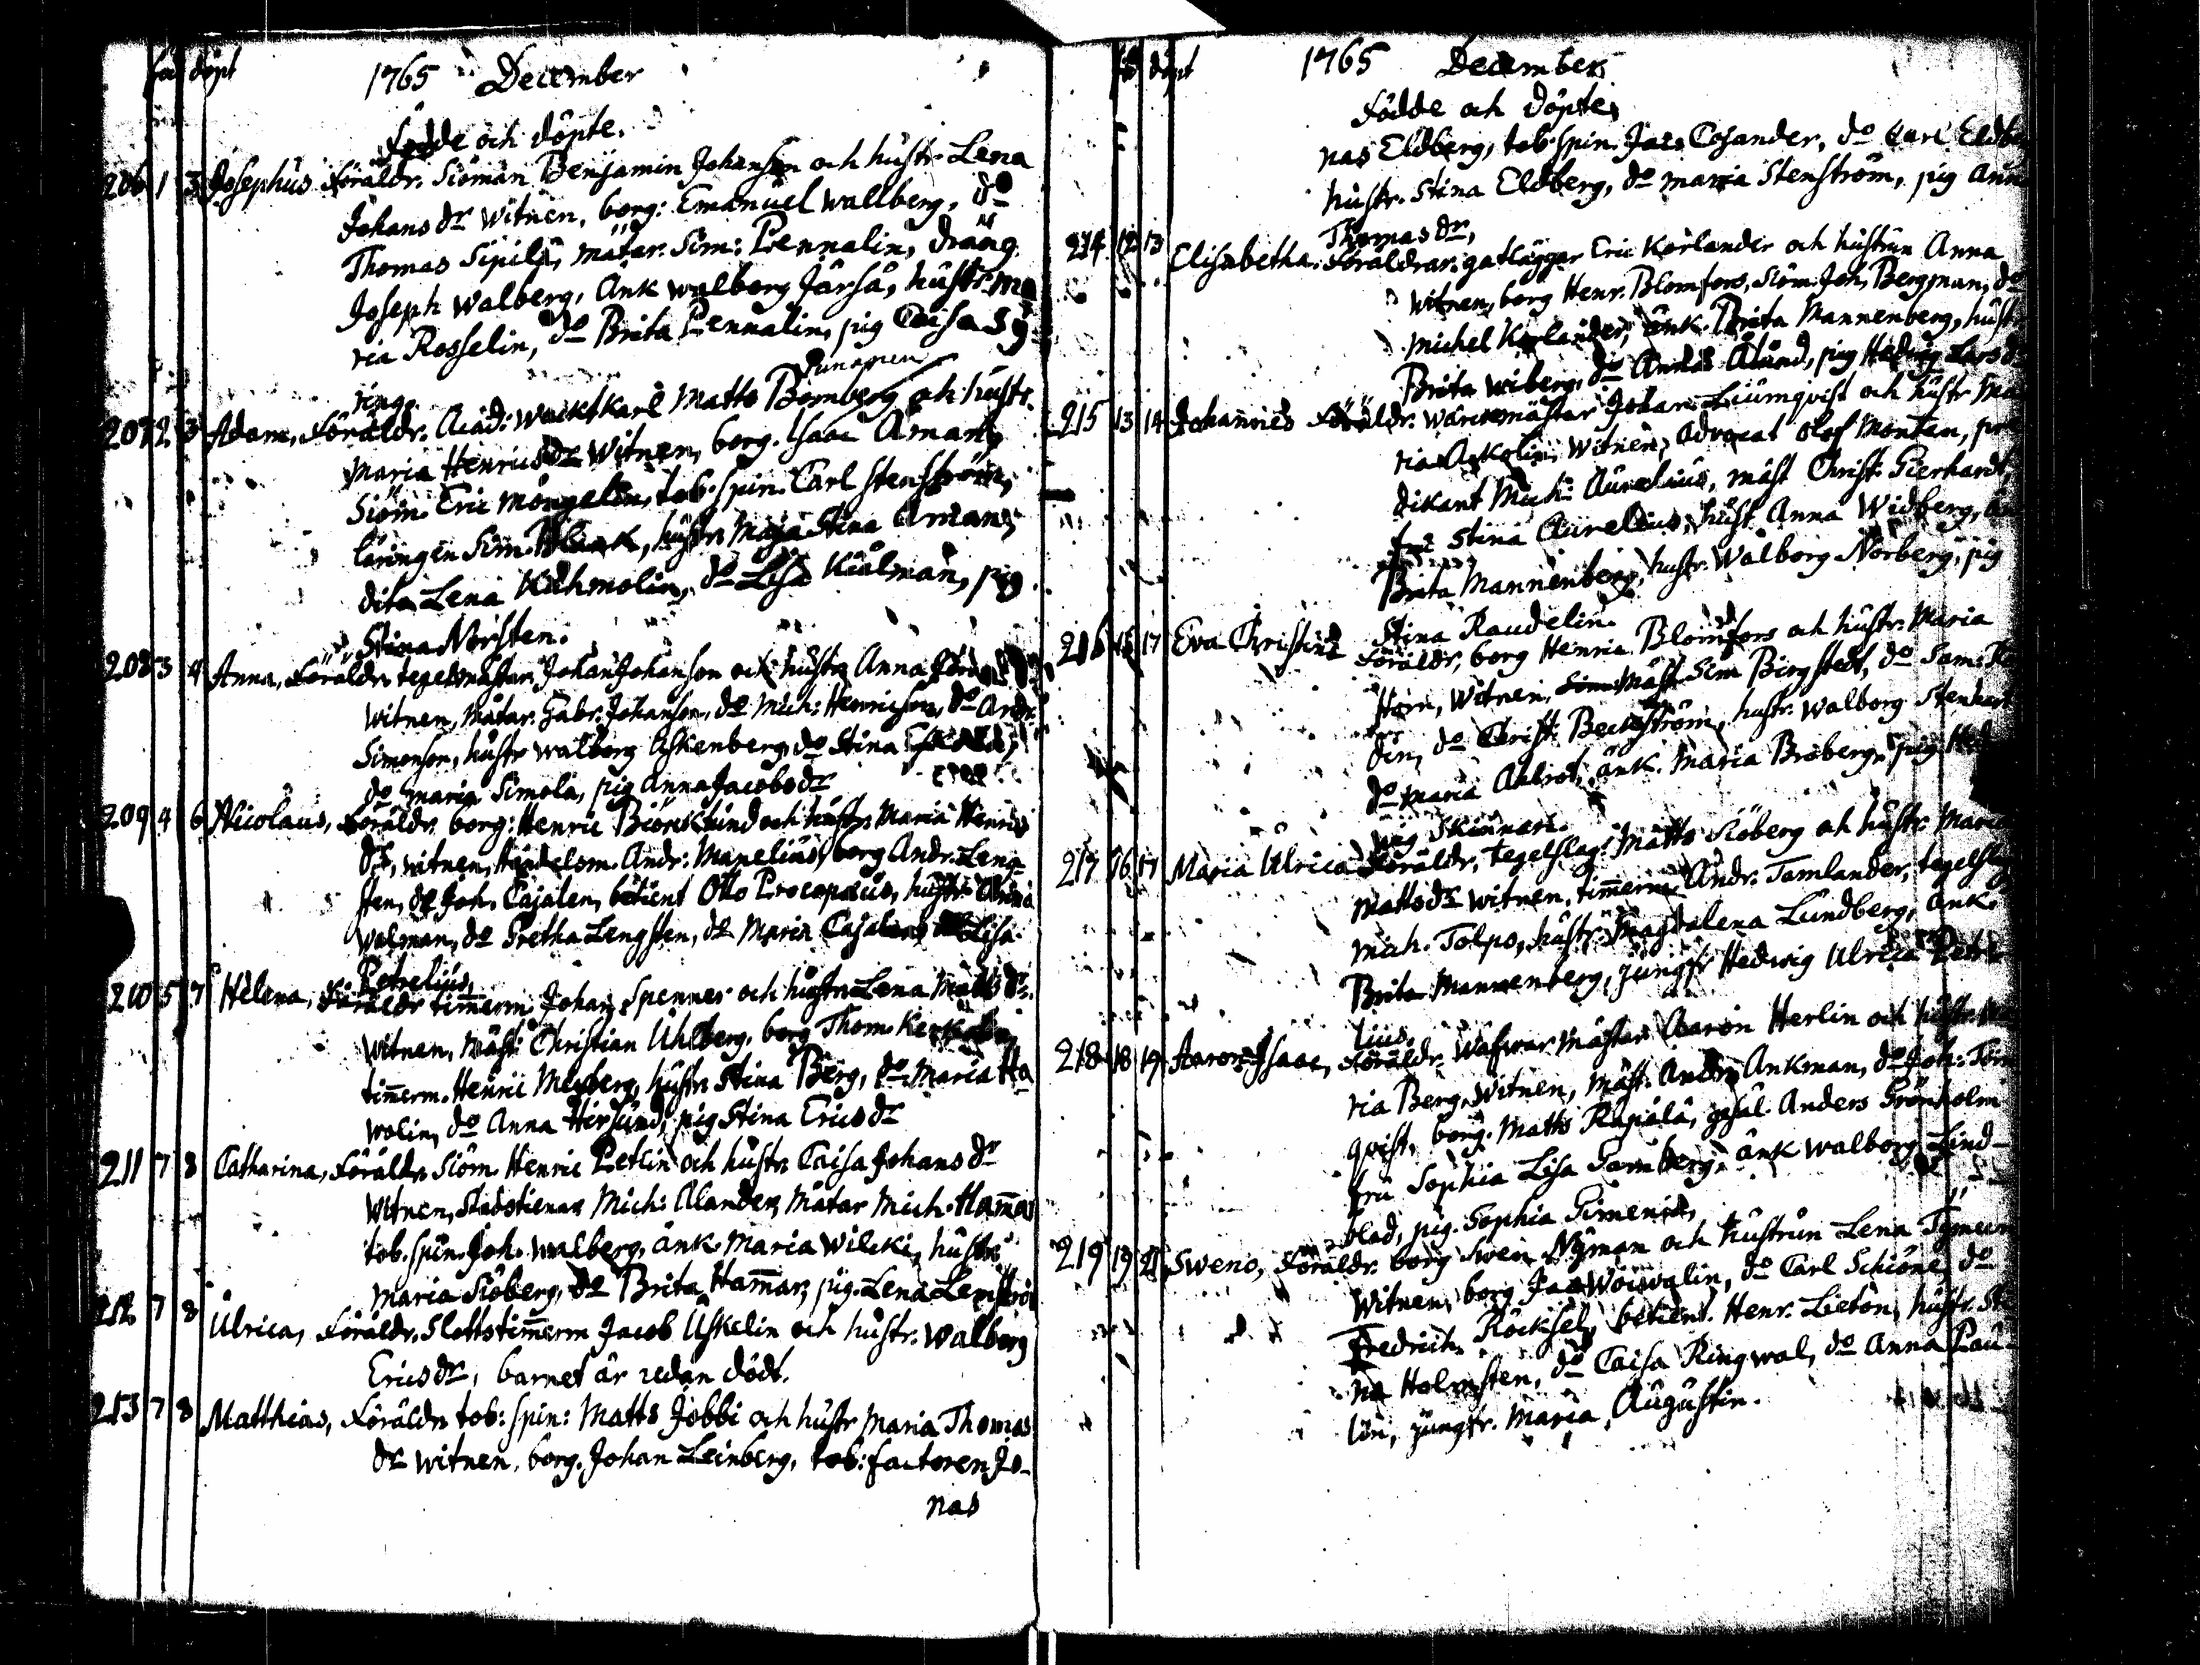 fö döpt 1765 December
Födde och döpte.
206 1 3 Josephus Föräldr. Siöman Benjamin Johanson och hustr. Lena
Johans dr witnen, borg: Emanuel wallberg, do
Thomas Sipilä, mätar. Sim: Pennalin, dräng
Joseph Walberg, Änk walborg Järsä, hustr. Ma
ria Rosselin, do Brita Pennalin, pig Caisa Sy
ring.
Punapuen
207 2 3 Adam, Föräldr. Acad: wacktkarl Matts Bomberg och hustr.
Maria Henrics dr witnen, borg. Isaac Åman,
Siöm. Eric Mongelin, tob. spin. Carl Stenström,
läringen Sim. Blank, hustr Maja Stina Åman,
dita Lena Kuhmolin, do Lisa Kiälman, pig
Stina Norsten.
208 3 4 Anna, Föräldr. tegelmästar. Johan Johanson och hustr Anna
witnen, Mätar. Gabr. Johanson, do Mich: Henricson, do Andr.
Simonson, hustr walborg Askenberg, do Stina
do Maria Simola, pig Anna Jacobs dr
209 4 6 Nicolaus, Föräldr. borg: Henric Biörklund och hustr. Maria Henrics
dr, witnen, Handelsm. Andr: Manelius, borg Andr. Leng
sten, do Joh. Cajalen, betient Otto Procopaeus, hustr Anna
walman, do Gretha Lengsten, do Maria Cajalens Lisa
Petrelius,
210 5 7 Helena, Föräldr timerm Johan Spenner och hustr Lena Matts dr.
witnen, mäst: Christian Uhlberg, borg Thom.
timerm. Henric Meyberg, hustr Stina Berg, do Maria Ha
wolin, do Anna Hirslund, pig Stina Erics dr
211 7 8 Catharina, Föräldr. Siöm Henric Petlin och hustr Caisa Johans dr
witnen, Stadstienar Mich: Alander, Mätar Mich. Hamar
tob. spin. Joh. walberg, änk. Maria Wilcki, hustr
Maria Siöberg, do Brita Hamar, pig. Lena Lemströ
212 7 8 Ulrica, Föräldr. Slottstimerm Jacob Uskelin och hustr. walborg
Erics dr, barnet är redan dödt.
213 7 8 Matthias, Föräldr tob: spin: Matts Jobbi och hustr Maria Thomas
dr witnen, borg. Johan Leinberg, tob: factoren Jo-
nas
fö döpt 1765 December
Födde och döpte,
nas Eldberg, tob. spin. Jac. Cojander, do Carl Eldbe
hustr. Stina Eldberg, do Maria Stenström, pig Ann
Thomas dr,
214 12 13 Elisabetha. Föräldrar. gatläggar Eric Korlander och hustrun Anna
witnen, borg Henr. Blomfors, Siöm. Joh. Bergman, do
Michel Korlander, änk. Brita Mannenberg, hustr
Brita Wiberg, do Annas Ålund, pig Hedvig Lars dr
215 13 14 Johannes Föräldr. Johan Liumqvist och hustr Ma
ria Askolin, witnen, Advocat Olof Montan, pre
dikant Mich: Aurelius, mäst Christ: Gierhardt,
fru Stina Aurelius, hust Anna Widberg,
Brita Mannenberg, hustr. Walborg Norberg, pig
Stina Raudelin.
216 16 17 Eva Christina Föräldr, borg Henric Blomfors och hustr. Maria
Horn, witnen, Mäst Sim Bergstedt, do Sam:
din, do Christ: Beckström, hustr. walborg
do Maria Ahlrot, änk. Maria Broberg, pig Hed
wig Skinnari.
217 16 17 Maria Ulrica Föräldr, tegelslag: Matts Siöberg och hustr. Maria
Matts dr witnen, timerm. Andr. Tamlander, tegelslag
Mich. Tolpo, hustr. Magdalena Lundberg, änk.
Brita Mannenberg, jungfr Hedwig Ulrica Petre
lius.
218 18 19 Aaron Isaac, Föräldr. Wäfwar Mästar Aaron Herlin och hustr. Ma
ria Berg. witnen, Mäst. Andr. Ankman, do Joh: Törn
qvist, borg. Matts Rapiala, gesäl. Anders Grönholm
fru Sophia Lisa änk walborg Lind-
blad, pig. Sophia Simens dr
219 19 21 Sweno, Föräldr. borg Swen Nyman och hustrun Lena
witnen, borg Jac Woiwalin, do Carl Schiöne, do
Fredrich. Röcksel, betient. Henr. Lieton, hustr. Sti
na Holmsten, do Caisa Ringwal, do Anna Pau-
lin, jungfr. Maria Augustin.